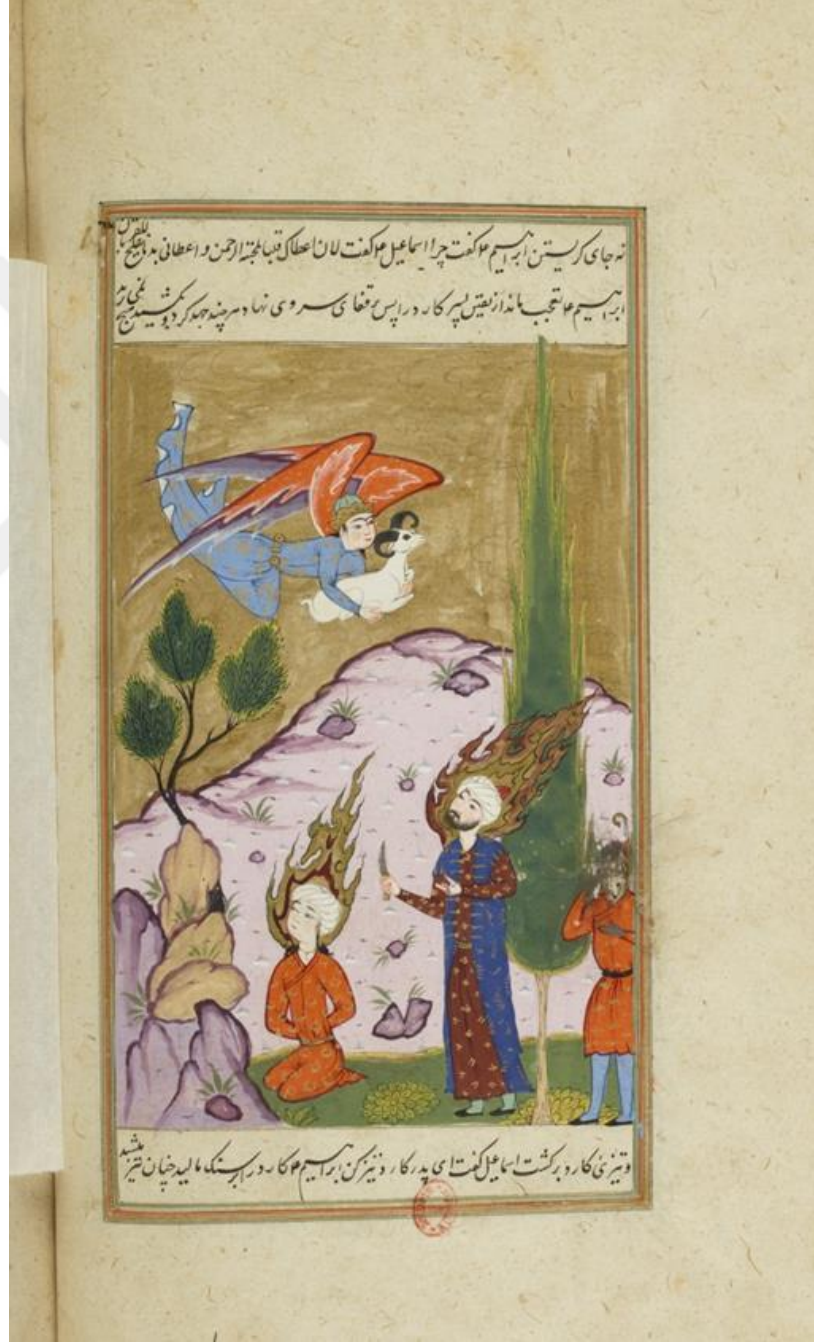 نه جای کریستن ابراهیم ۴ کفت چرا اسماعیل ۴ کفت لان اعطاک قلبا لمحبة الرحمن و اعطانی بدنا
ابراهیم ۴ تعجب ماند از یقین پسر کارد را پس بر قفای سر وی نهاد هر چند جهد کرد و کشید
و تیزی کارد برکشت اسماعیل کفت ای پدر کارد تیز کن ابراهیم ۴ کارد را بر سنک مالید چنان تیز